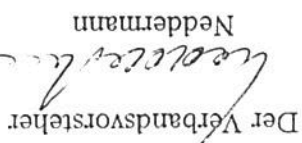 Der Verbandsvorsteher
Neddermann